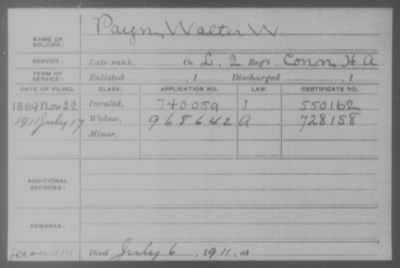 NAME OF SOLDIER: Payn, Walter W.
SERVICE: Late rank, Co. L. 2 Reg't Conn H. A
TERM OF SERVICE: Enlisted , 1 Discharged , 1
DATE OF FILING. CLASS. APPLICATION NO. LAW. CERTIFICATE NO.
1889 Nov 22 Invalid, 740059 J 550162
1911 July 17 Widow, 968642 A 728158
Minor,
ADDITIONAL SERVICES:
REMARKS:
Died July 6, 1911, at